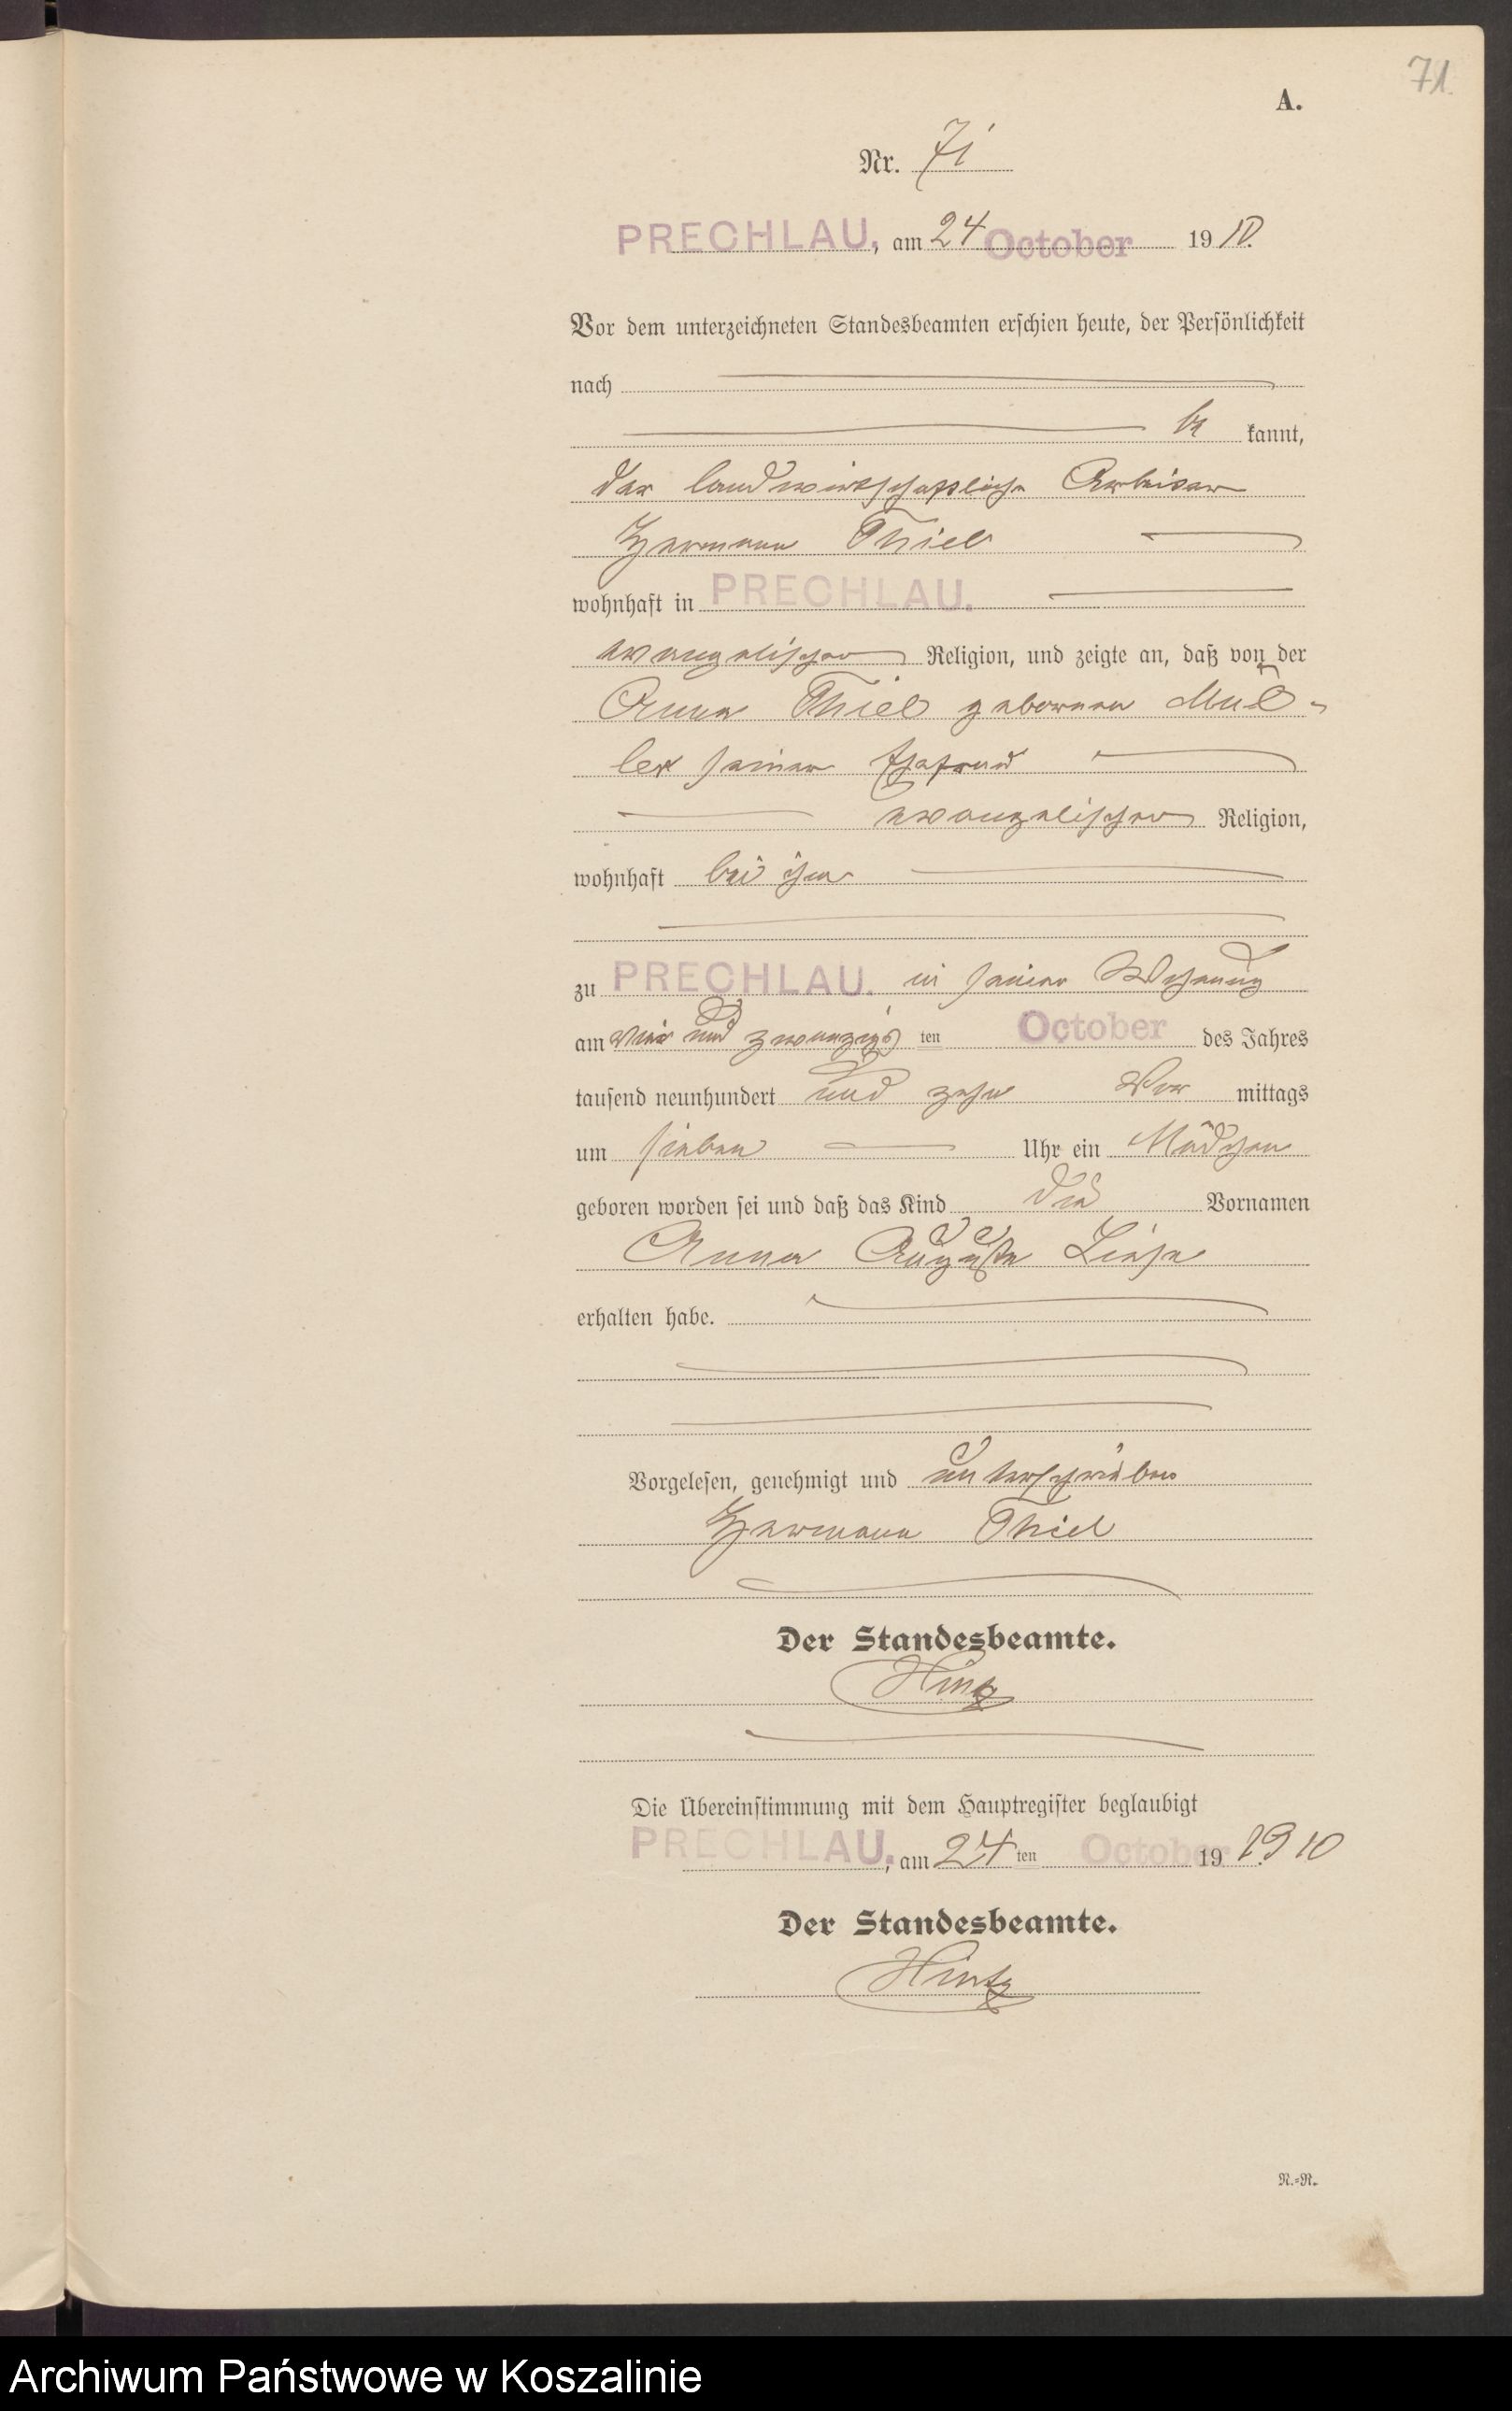 71.
A.
Nr. 71
PRECHLAU, am 24 October 1910.
Vor dem unterzeichneten Standesbeamten erschien heute, der Persönlichkeit
nach
be kannt,
der landwirtschaftliche Arbeiter
Hermann Thiel
wohnhaft in PRECHLAU.
evangelischer Religion, und zeigte an, daß von der
Anna Thiel geborenen Mül-
ler seiner Ehefrau
evangelischer Religion,
wohnhaft bei ihm
zu PRECHLAU. in seiner Wohnung
am vier und zwanzigsten October des Jahres
tausend neunhundert und zehn Vor mittags
um sieben Uhr ein Mädchen
geboren worden sei und daß das Kind die Vornamen
Anna Auguste Liese
erhalten habe.
Vorgelesen, genehmigt und unterschrieben
Hermann Thiel
Der Standesbeamte.
Hintz
Die Übereinstimmung mit dem Hauptregister beglaubigt
PRECHLAU, am 24 ten October 19 1910
Der Standesbeamte.
Hintz
N.=R.
Archiwum Państwowe w Koszalinie